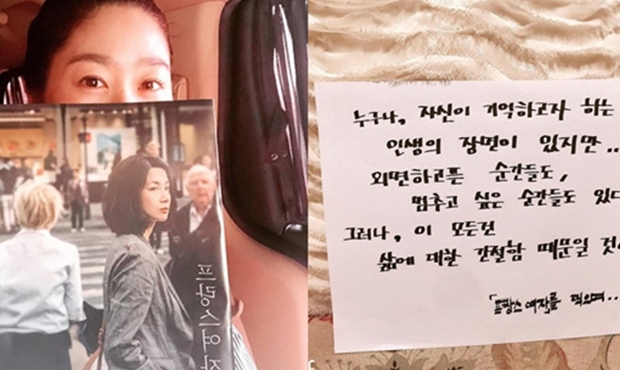 프랑스여자
누구나, 자신이 기억하고자 하는
인생의 장면이 있지만..
외면하고픈 순간들도,
멈추고 싶은 순간들도 있다
그러나, 이 모든건
삶에 대한 간절함 때문일
「프랑스 여자」를 찍으며...